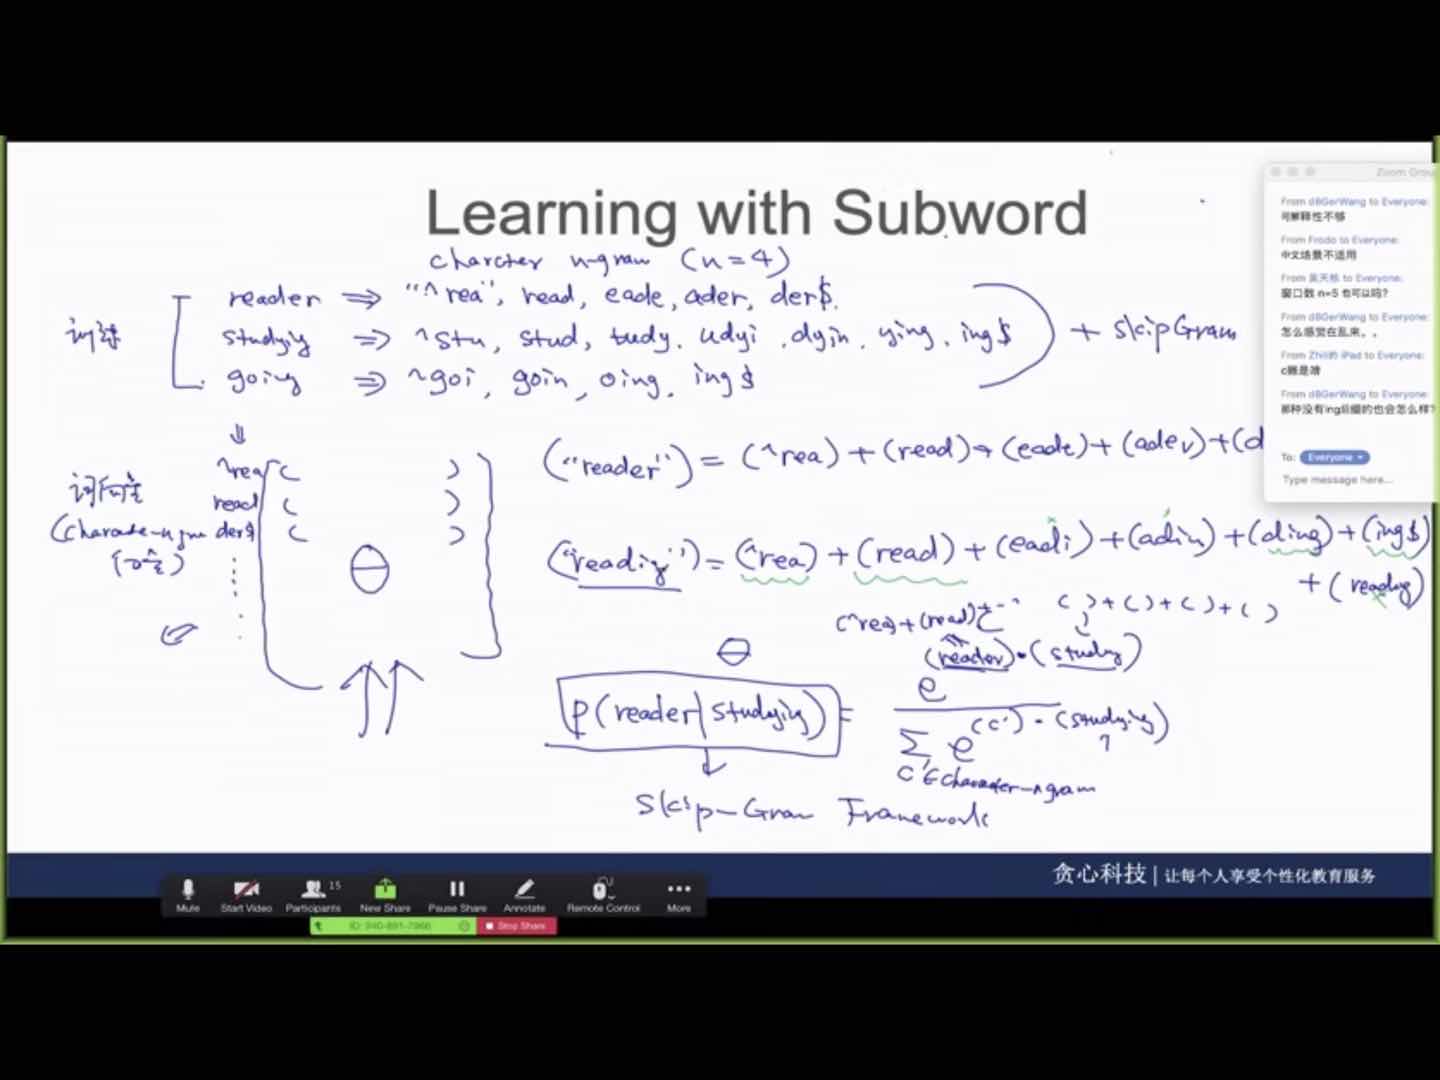 Learning with Subword
charcter n-gram (n=4)
reader ⇒ "^rea", read, eade, ader, der$.
studyig ⇒ ^stu, stud, tudy, udyi, dyin, ying, ing$
+ SkipGram
going ⇒ ^goi, goin, oing, ing$
^rea ( )
read ( )
der$ ( )
θ
("reader") = (^rea) + (read) + (eade) + (ader) + (d
("readig") = (^rea) + (read) + (eadi) + (adin) + (ding) + (ing$)
+ (readig)
(^rea) + (read) + ( ) + ( ) + ( ) + ( )
θ
(reader) · (studyig)
p(reader|studyig) = e
Σ e (c') · (studyig)
c' ∈ character-ngram
Skip-Gram Framework
Zoom Grou
From dBGerWang to Everyone:
可解释性不够
From Frodo to Everyone:
中文场景不适用
From 吴天栋 to Everyone:
窗口数 n=5 也可以吗?
From dBGerWang to Everyone:
怎么感觉在乱来。。
From Zhili的 iPad to Everyone:
From dBGerWang to Everyone:
那种没有ing后缀的也会怎么样?
To: Everyone
Type message here...
贪心科技 | 让每个人享受个性化教育服务
15
Mute Start Video Participants New Share Pause Share Annotate Remote Control More
Stop Share